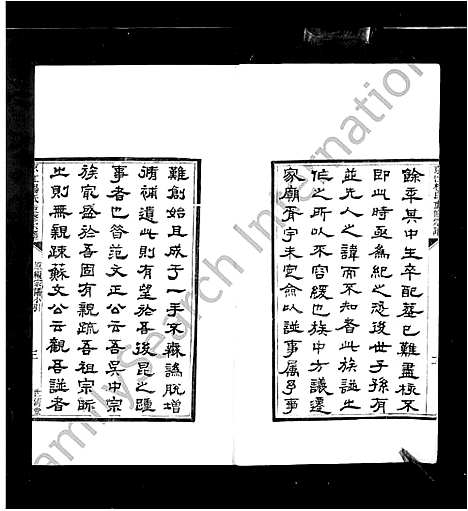 餘年其中生卒配墓已難盡稽不
即此時亟為紀之恐後世子孫有
並先人之諱而不知者此族譜之
作之所以不容緩也族中方議遷
家廟育宇未定僉以譜事屬予事
難創始且成于一手不無譌脫增
補遺此則有望於吾後昆之踵
事者也昔范文正公云吾吳中宗
族家盛於吾固有親疏吾祖宗眎
之則無親疎蘇文公云觀吾譜者
二
三
FamilySearch International